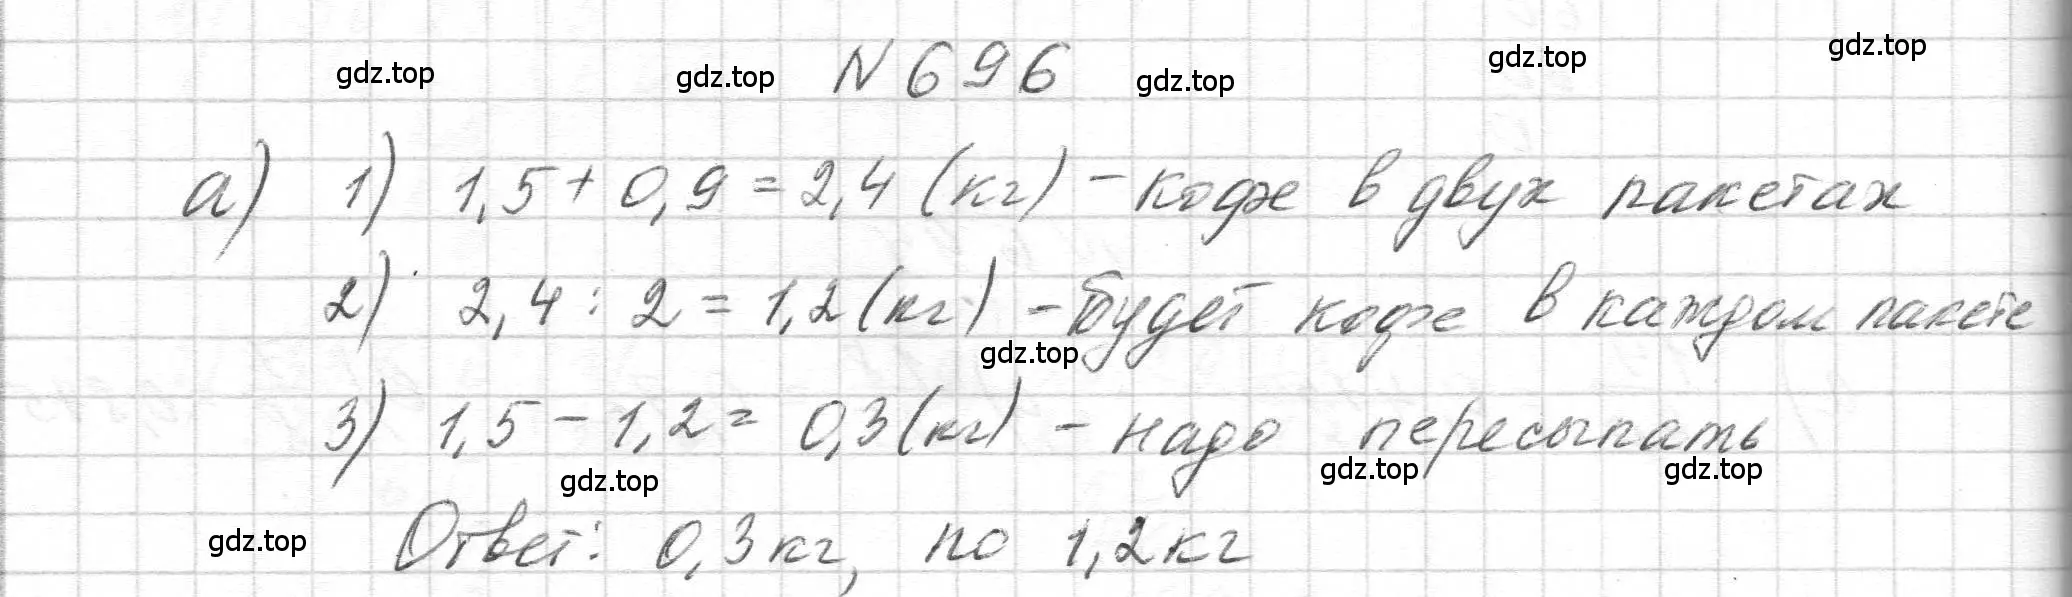 N 696
gdz.top gdz.top gdz.top gdz.top gdz.top
а) 1) 1,5 + 0,9 = 2,4 (кг) - кофе в двух пакетах
2) 2,4 : 2 = 1,2 (кг) - будет кофе в каждом пакете
gdz.top
3) 1,5 - 1,2 = 0,3 (кг) - надо пересыпать
gdz.top gdz.top gdz.top
Ответ: 0,3 кг, по 1,2 кг
gdz.top